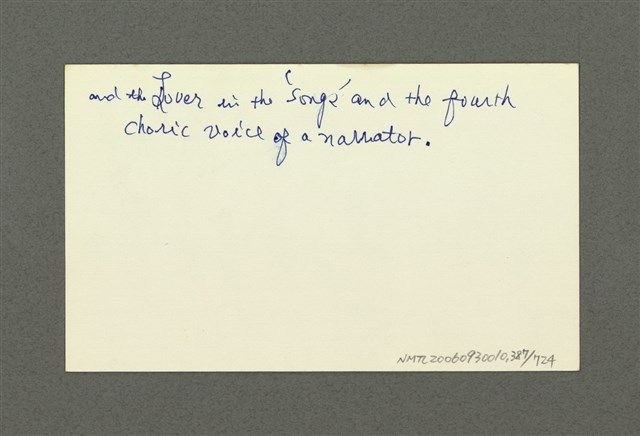 and the Lover in the 'Songs' and the fourth
choric voice of a narrator.
NMTL20060930010,387/724